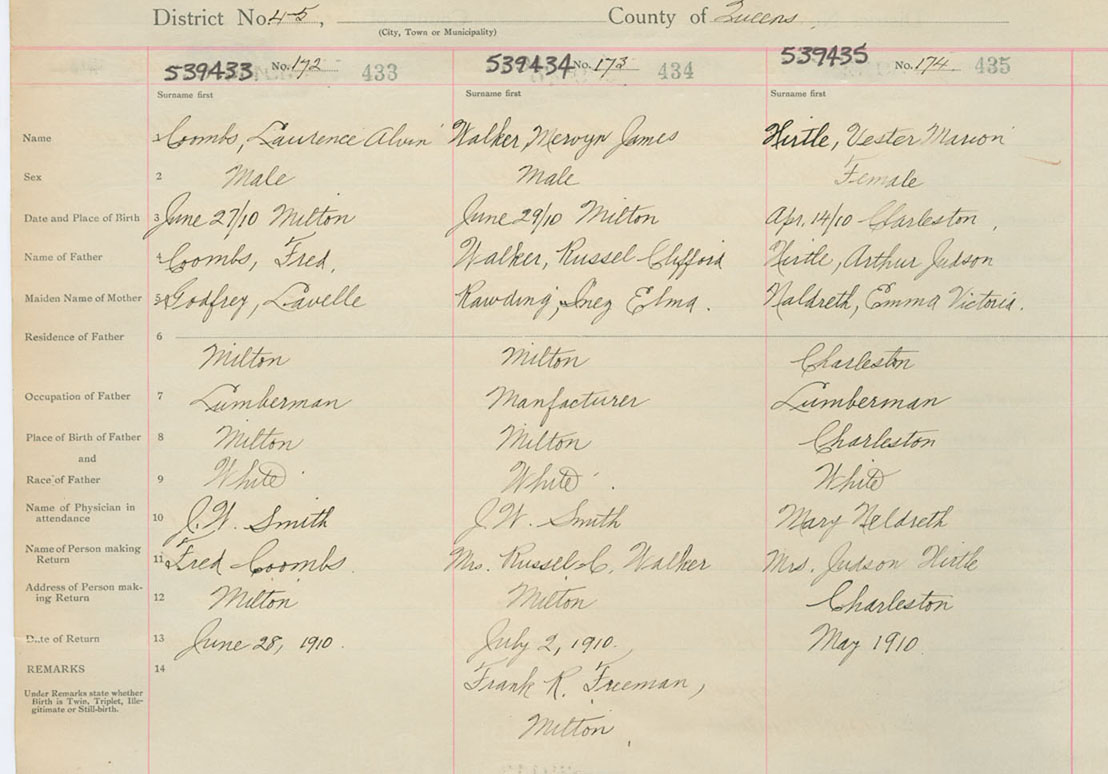 District No. 45, County of Queens
(City, Town or Municipality)
539433 No. 172 433 539434 No. 173 434 539435 No. 174 435
Surname first Surname first Surname first
Name 1 Coombs, Laurence Alvin Walker, Mervyn James Hirtle, Vester Marion
Sex 2 Male Male Female
Date and Place of Birth 3 June 27/10 Milton June 29/10 Milton Apr. 14/10 Charleston
Name of Father 4 Coombs, Fred, Walker, Russel Clifford Hirtle, Arthur Judson
Maiden Name of Mother 5 Godfrey, Lavelle Rawding, Inez Elma. Naldreth, Emma Victoria.
Residence of Father 6
Milton Milton Charleston
Occupation of Father 7 Lumberman Manfacturer Lumberman
Place of Birth of Father 8 Milton Milton Charleston
and
Race of Father 9 White White White
Name of Physician in
attendance 10 J.W. Smith J.W. Smith Mary Neldreth
Name of Person making
Return 11 Fred Coombs. Mrs. Russel C. Walker Mrs. Judson Hirtle
Address of Person mak-
ing Return 12 Milton Milton Charleston
Date of Return 13 June 28, 1910. July 2, 1910. May 1910
REMARKS 14 Frank R. Freeman,
Under Remarks state whether
Birth is Twin, Triplet, Ille-
gitimate or Still-birth.
Milton